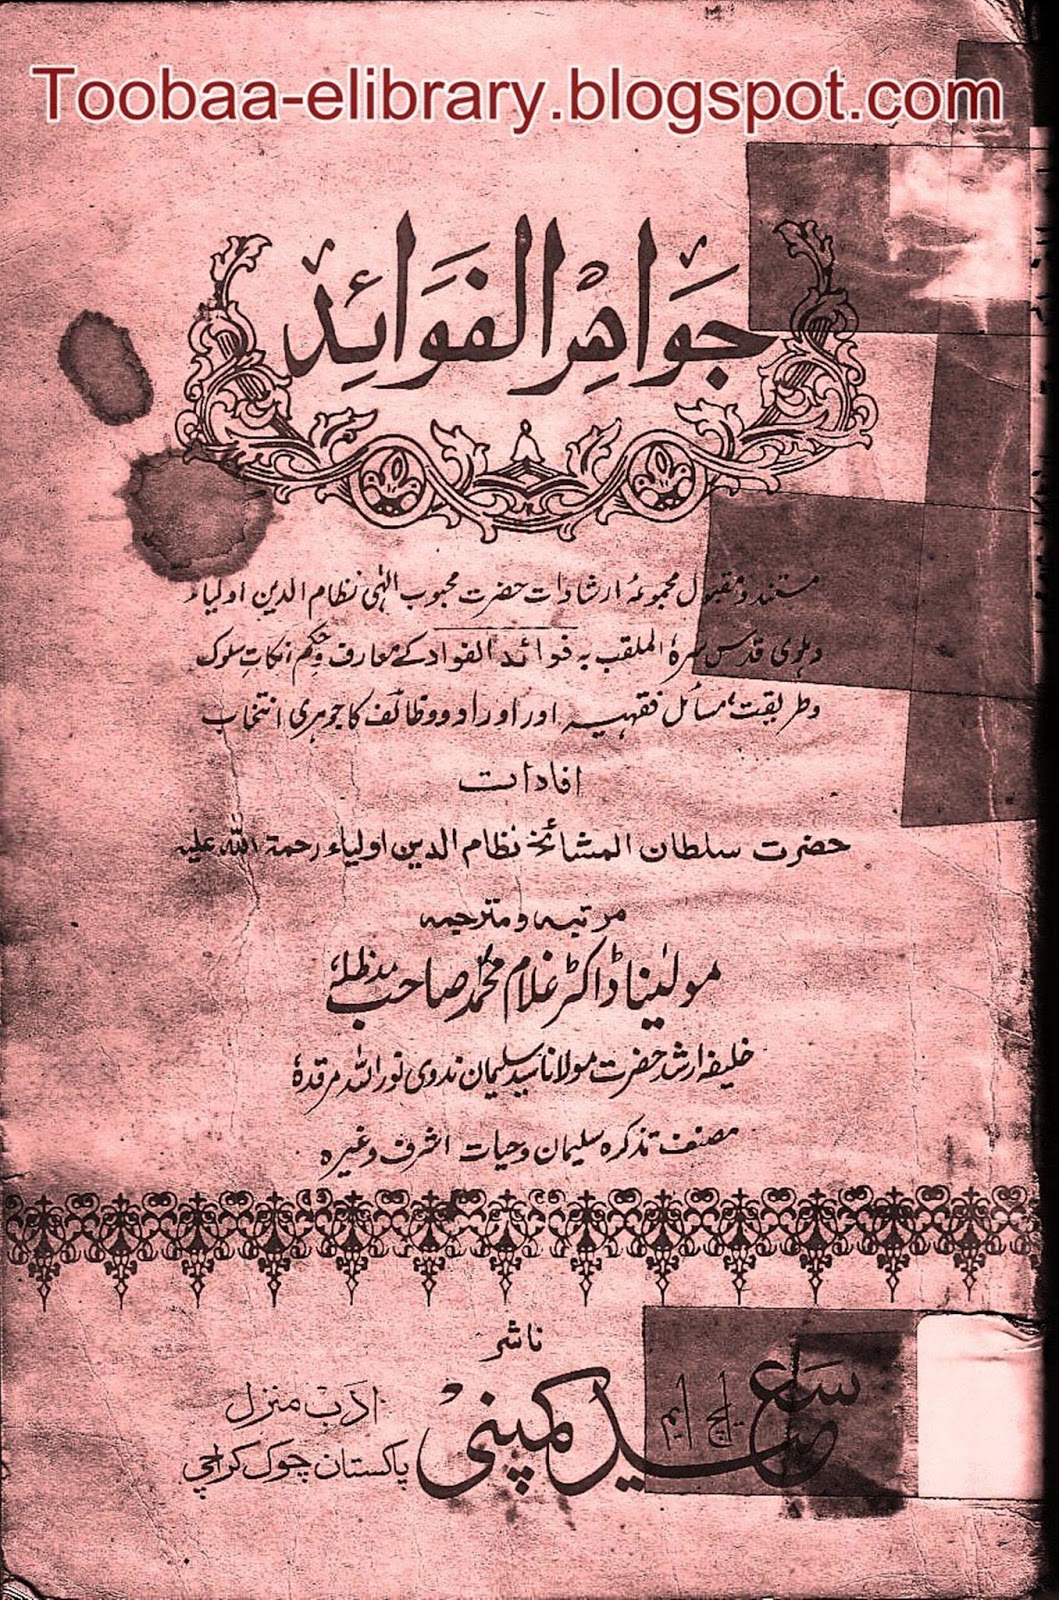 Toobaa-elibrary.blogspot.com
جَوَاهِرُ الفَوَائِد
مستند و مقبول مجموعۂ ارشادات حضرت محبوب الٰہی نظام الدین اولیاء
دہلوی قدس سرہٗ الملقب بہ فوائد الفواد کے معارف و حکم، نکاتِ سلوک
و طریقت، مسائل فقہیہ اور اوراد و وظائف کا جوہری انتخاب
افادات
حضرت سلطان المشائخ نظام الدین اولیاء رحمۃ اللہ علیہ
مرتبہ و مترجمہ
مولٰینا ڈاکٹر غلام محمد صاحب مدظلہٗ
خلیفہ ارشد حضرت مولانا سید سلیمان ندوی نور اللہ مرقدہٗ
مصنف تذکرہ سلیمان و حیات اشرف وغیرہ
ناشر
ایچ ایم سعید کمپنی
ادب منزل
پاکستان چوک کراچی